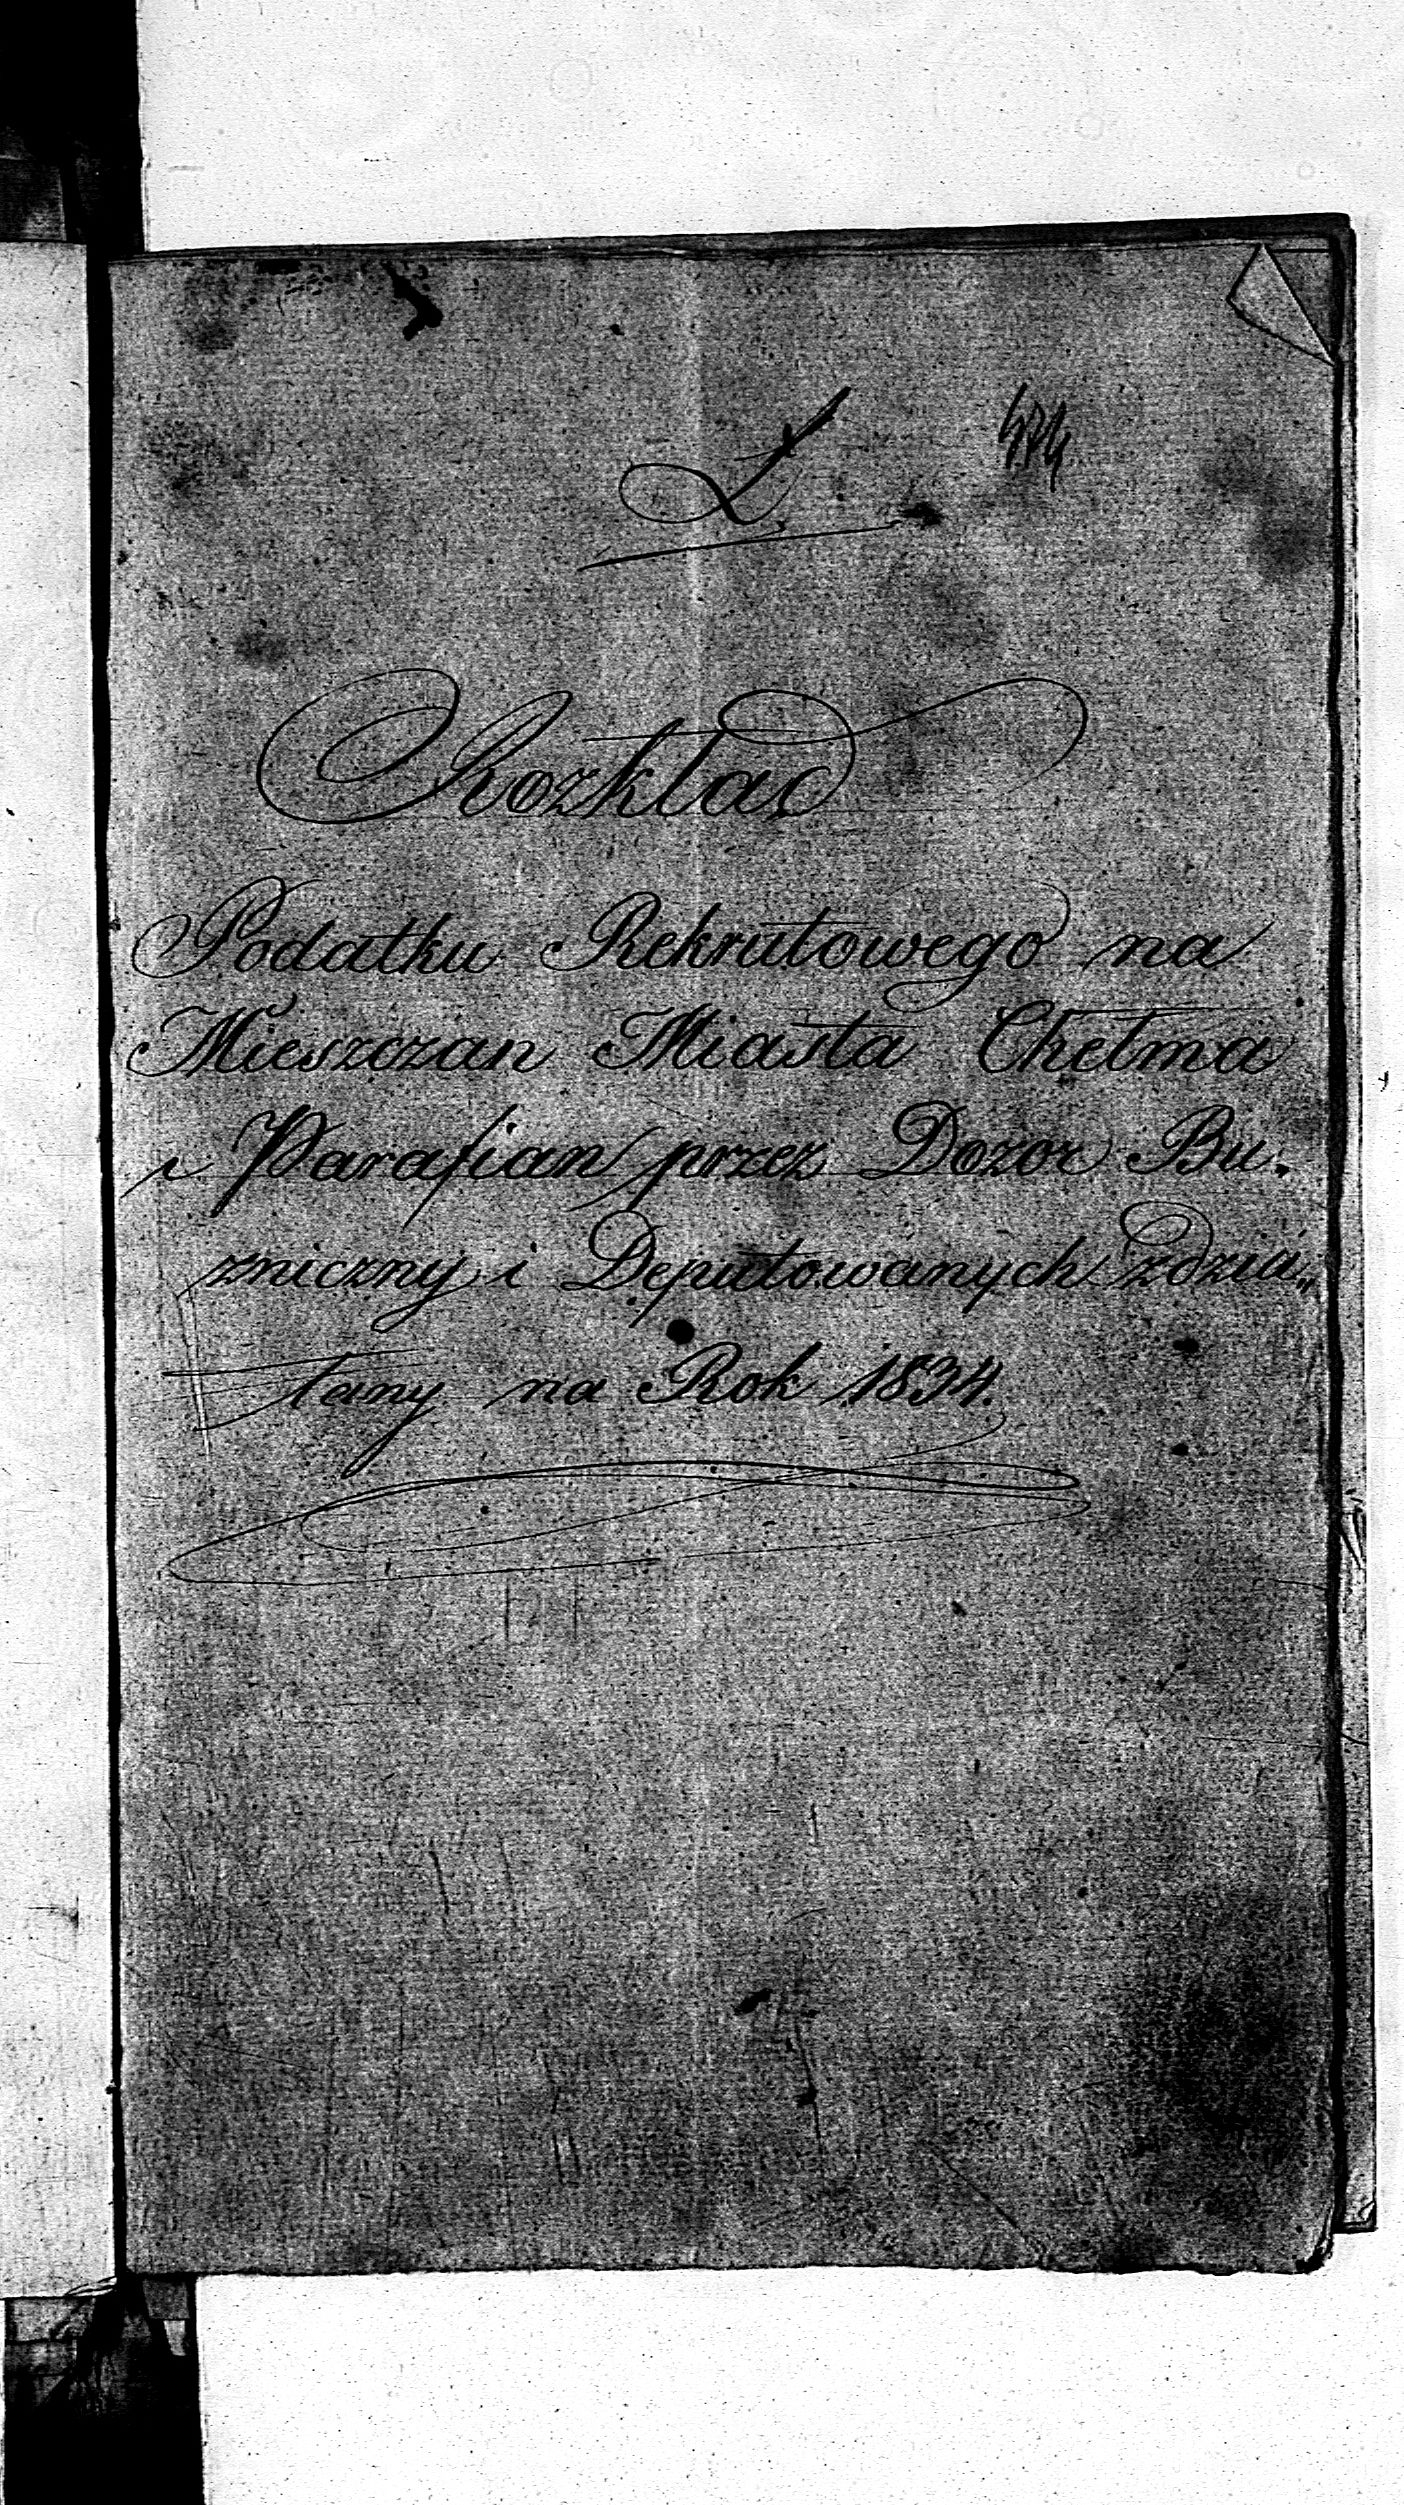 Ł
Rozkład
Podatku Rekrutowego na
Mieszczan Miasta Chełma
i Parafian przez Dozor Bu-
zniczny i Deputowanych zdzia„
łany na Rok 1834.